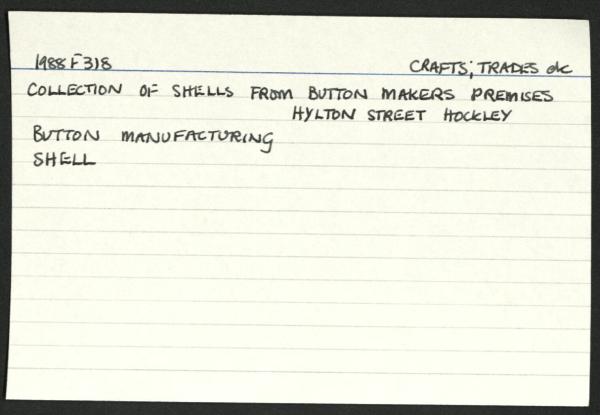 1988 F318 CRAFTS; TRADES etc
COLLECTION OF SHELLS FROM BUTTON MAKERS PREMISES
HYLTON STREET HOCKLEY
BUTTON MANUFACTURING
SHELL